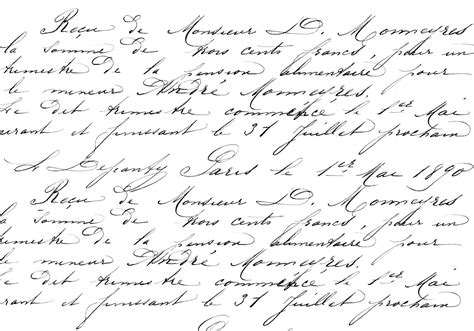 Reçu de Monsieur D. Monneyres
la somme de trois cents francs, pour un
trimestre de la pension alimentaire pour
le mineur André Monneyres.
Le dit trimestre commence le 1er Mai
courant et finissant le 31 Juillet prochain
Paris le 1er Mai 1890
Reçu de Monsieur D. Monneyres
la somme de trois cents francs, pour un
trimestre de la pension alimentaire pour
le mineur André Monneyres.
Le dit trimestre commence le 1er Mai
urant et finissant le 31 Juillet prochain